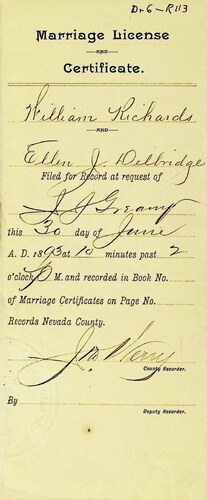 Dr6-R113
Marriage License
AND
Certificate.
William Richards
AND
Ellen J. Delbridge
Filed for Record at request of
this 30 day of June
A. D. 1893 at 10 minutes past 2
o'clock P M. and recorded in Book No.
of Marriage Certificates on Page No.
Records Nevada County.
County Recorder.
By
Deputy Recorder.